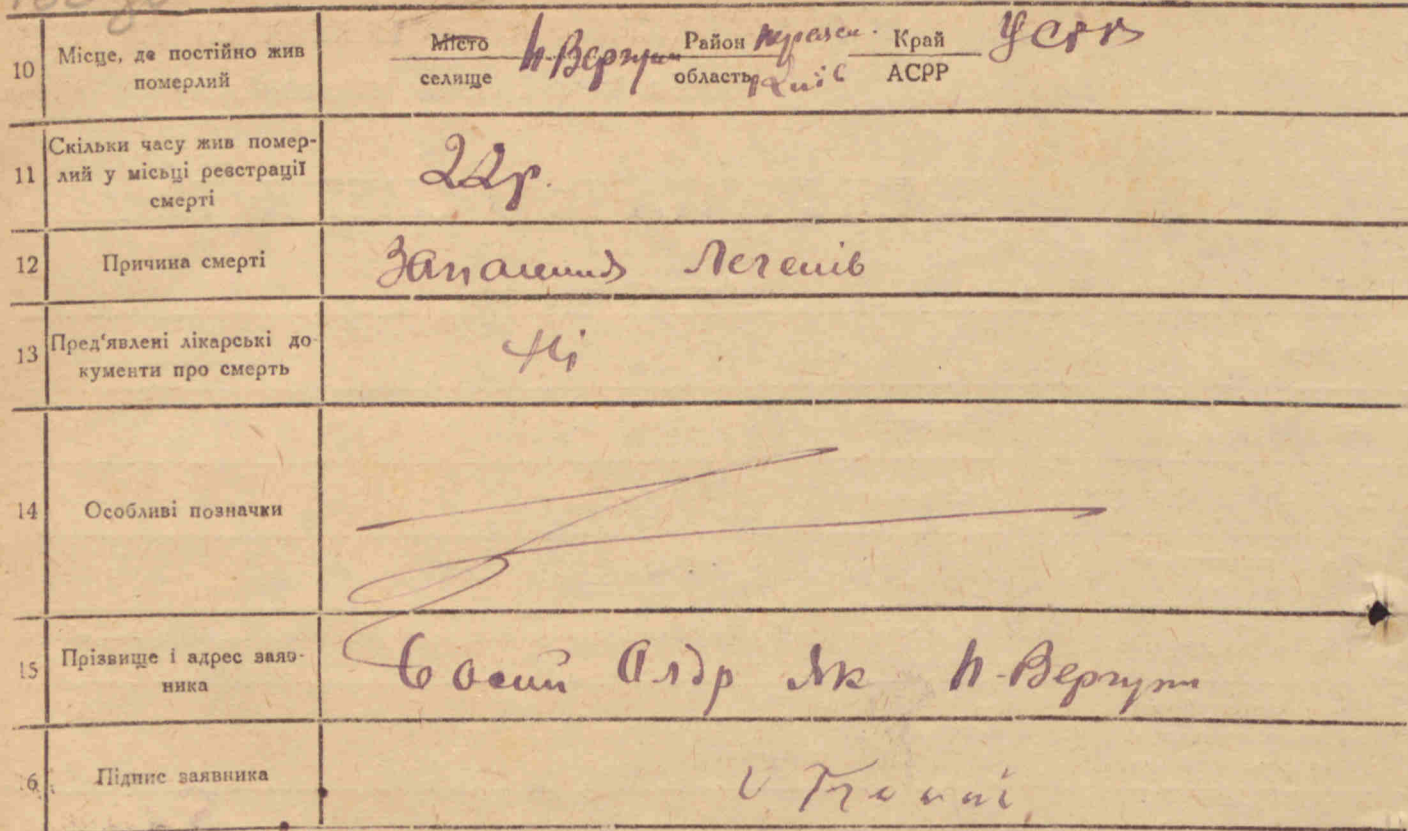 10 Місце, де постійно жив померлий
Місто селище Н-Вергуни Район область Київ Край АСРР УСРР
11 Скільки часу жив помер-
лий у місьці реєстрації
смерті
22р.
12 Причина смерті Запалення Легенів
13 Пред'явлені лікарські до-
кументи про смерть
Ні
14 Особливі позначки
15 Прізвище і адрес заяв-
ника
Босий Алдр Як Н-Вергуни
16 Підпис заявника